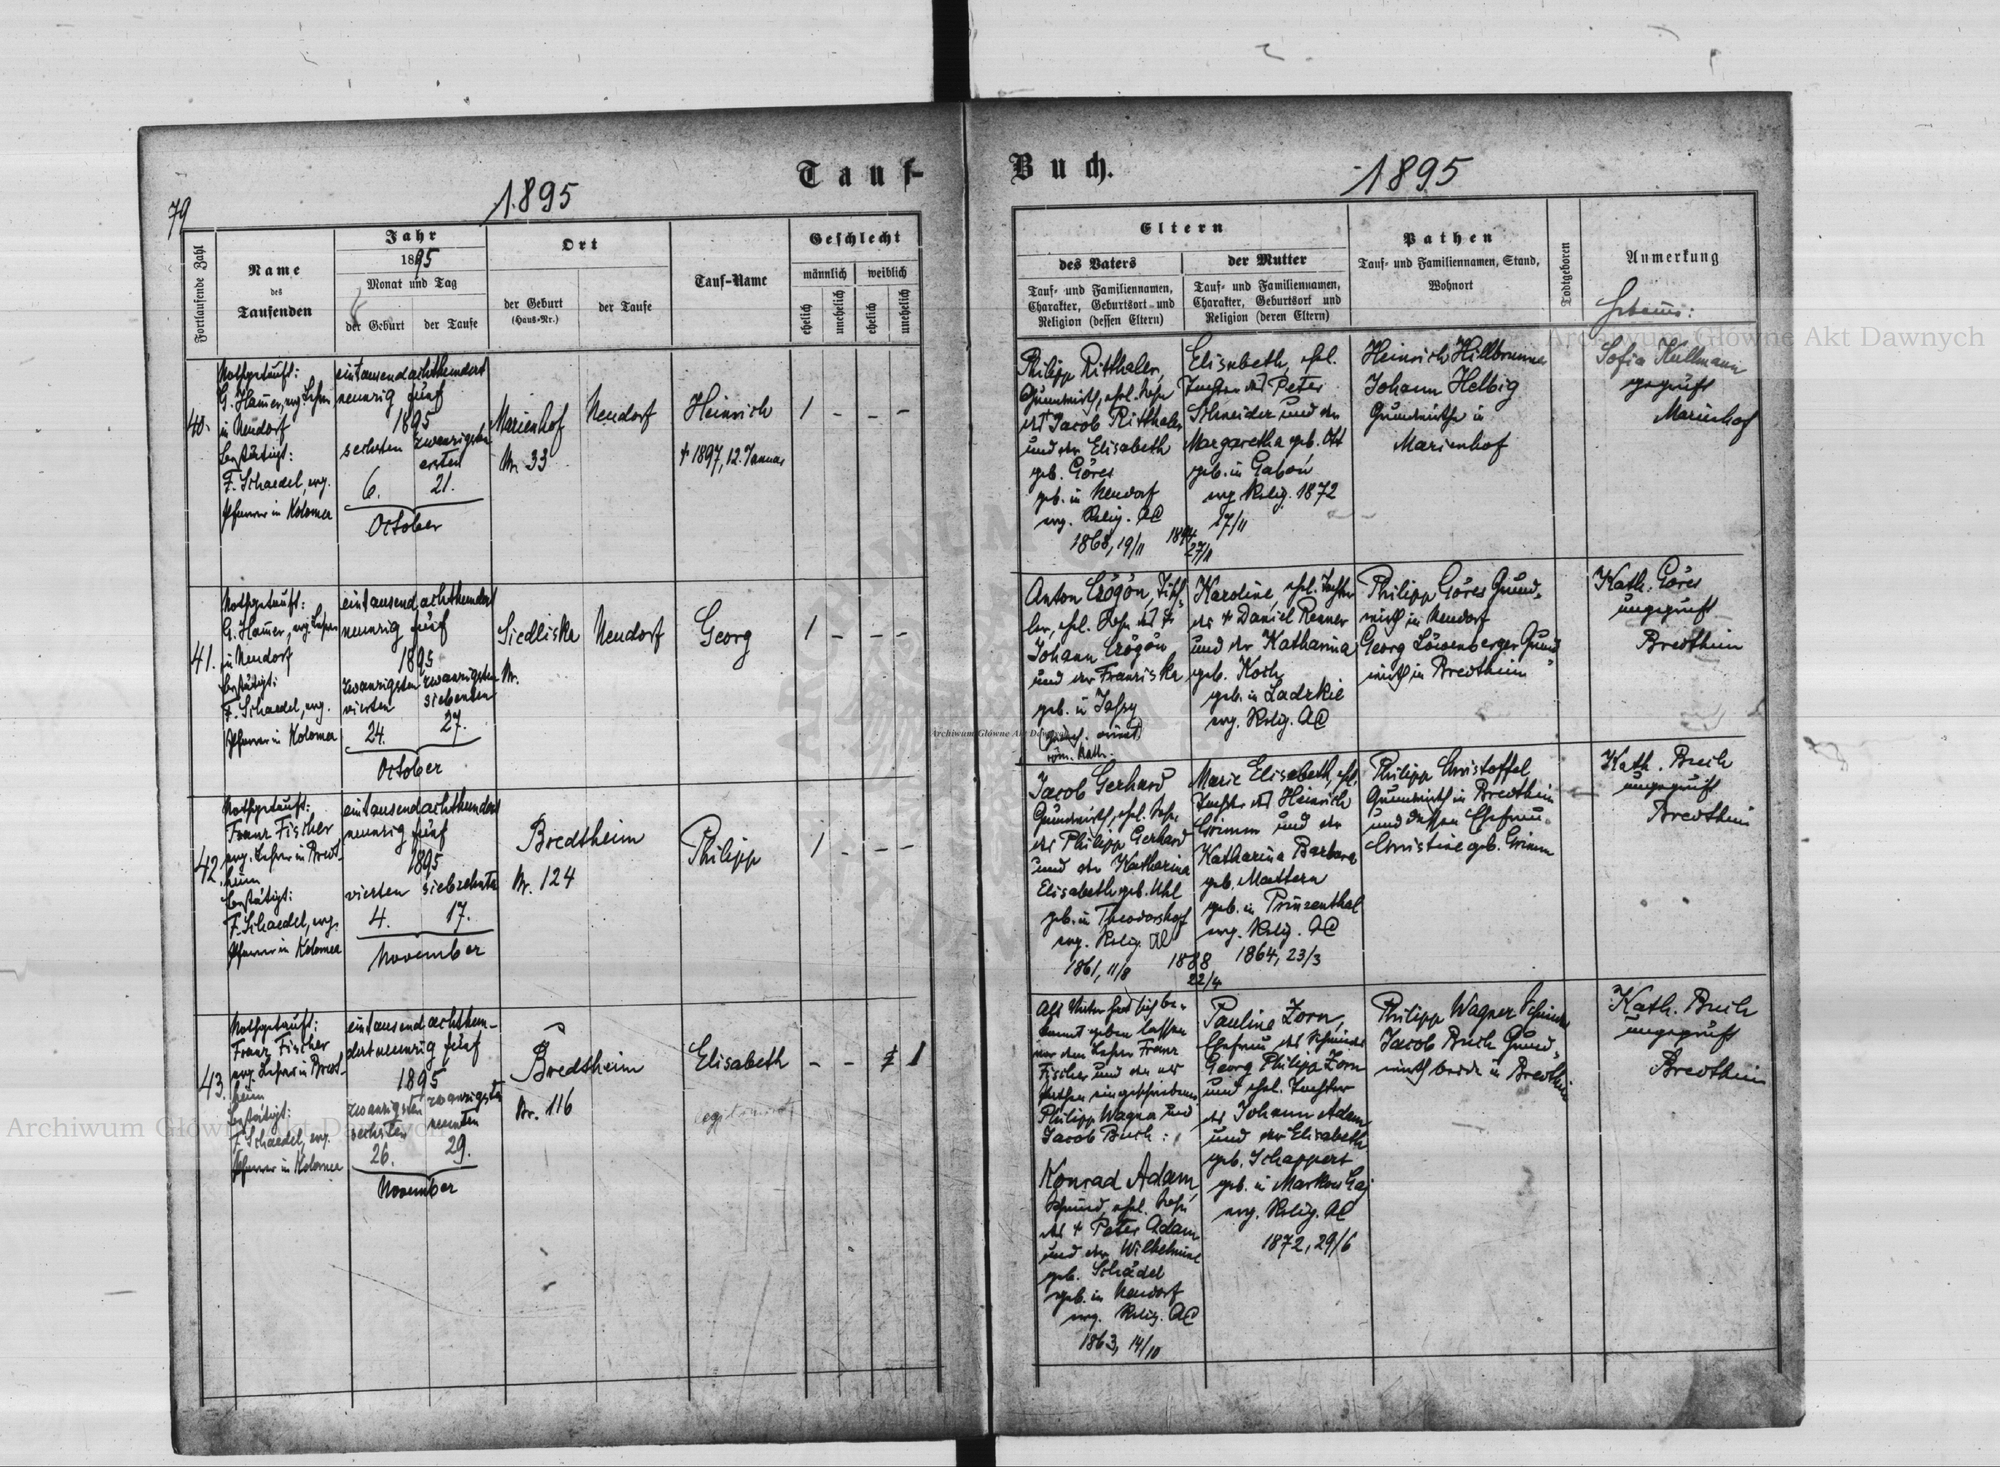 79
1895
Tauf-
Fortlaufende Zahl
Name
des
Taufenden
Jahr
1895
Monat und Tag
der Geburt
der Taufe
Ort
der Geburt
(Haus-Nr.)
der Taufe
Tauf-Name
Geschlecht
männlich
weiblich
ehelich
unehelich
ehelich
unehelich
40.
Nothgetauft:
G. Hamer, evg. Lehrer
in Neudorf
bestätigt:
F. Schaedel, evg.
Pfarrer in Kolomea
eintausendachthundert
neunzig fünf
1895
sechsten
zwanzigsten
ersten
6.
21.
October
Marienhof
Nr. 33
Neudorf
Heinrich
+ 1897, 12. Januar
1 - - -
41.
Nothgetauft:
G. Hamer, evg. Lehrer
in Neudorf
bestätigt:
F. Schaedel, evg.
Pfarrer in Kolomea
eintausendachthundert
neunzig fünf
1895
zwanzigsten zwanzigsten
vierten siebenten
24.
27.
October
Siedliska
Nr.
Neudorf
Georg
1 - - -
42.
Nothgetauft:
Franz Fischer
evg. Lehrer in Bredt-
heim
bestätigt:
F. Schaedel, evg.
Pfarrer in Kolomea
eintausendachthundert
neunzig fünf
1895
vierten siebzehnten
4.
17.
November
Bredtheim
Nr. 124
Philipp
1 - - -
43.
Nothgetauft:
Franz Fischer
evg. Lehrer in Bredt-
heim
bestätigt:
F. Schaedel, evg.
Pfarrer in Kolomea
eintausendachthun-
dertneunzig fünf
1895
zwanzigsten zwanzigsten
sechsten neunten
26.
29.
November
Bredtheim
Nr. 116
Elisabeth
- - 1 1
Buch.
1895
Eltern
des Vaters
Tauf- und Familiennamen,
Charakter, Geburtsort und
Religion (dessen Eltern)
der Mutter
Tauf- und Familiennamen,
Charakter, Geburtsort und
Religion (deren Eltern)
Pathen
Tauf- und Familiennamen, Stand,
Wohnort
Todtgeboren
Anmerkung
Hebamme:
Philipp Ritthaler,
Grundwirth, ehel. Sohn
des Jacob Ritthaler
und der Elisabeth
geb. Göres
geb. in Neudorf
evg. Relig. AC
1868, 19/11
1894
27/11
Elisabeth, ehel.
Tochter des Peter
Schneider und der
Margaretha geb. Ott
geb. in Gabon
evg. Relig. 1872
17/11
Heinrich Hillbrunner
Johann Helbig
Grundwirthe in
Marienhof
Sofia Kullmann
geprüft
Marienhof
Anton Czögön, Tisch-
ler, ehel. Sohn des +
Johann Czögön
und der Franziska
geb. in Jassy
röm. kath.
Karoline, ehel. Tochter
des + Daniel Renner
und der Katharina
geb. Koch
geb. in Ladzkie
evg. Relig. AC
Philipp Göres Grund-
wirth in Neudorf
Georg Löwenberger Grund-
wirth in Bredtheim
Kath. Göres
ungeprüft
Bredtheim
Jacob Gerhard
Grundwirth, ehel. Sohn
des Philipp Gerhard
und der Katharina
Elisabeth geb. Uhl
geb. in Theodorshof
evg. Relig. AC
1861, 11/8
1888
22/4
Marie Elisabeth, ehel.
Tochter des Heinrich
Grimm und der
Katharina Barbara
geb. Mattern
geb. in Prinzenthal
evg. Relig. AC
1864, 23/3
Philipp Christoffel
Grundwirth in Bredtheim
und dessen Ehefrau
Christine geb. Grimm
Kath. Buch
ungeprüft
Bredtheim
Als Vater hat sich be-
kannt geben lassen
vor dem Lehrer Franz
Fischer und den als
Pathen eingeschriebenen
Philipp Wagner und
Jacob Buch:
Konrad Adam,
Schmied, ehel. Sohn
des + Peter Adam
und der Wilhelmine
geb. Schädel
geb. in Neudorf
evg. Relig. AC
1863, 14/10
Pauline Zorn,
Ehefrau des Schmiedes
Georg Philipp Zorn
und ehel. Tochter
des Johann Adam
und der Elisabeth
geb. Schappert
geb. in Markow Gaj
evg. Relig. AC
1872, 29/6
Philipp Wagner Schmied
Jacob Buch Grund-
wirth beide in Bredtheim
Kath. Buch
ungeprüft
Bredtheim
Archiwum Główne Akt Dawnych
Archiwum Główne Akt Dawnych
Archiwum Główne Akt Dawnych